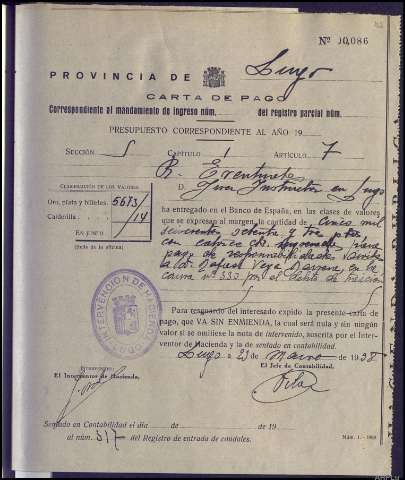 Nº 00,086
PROVINCIA DE Lugo
CARTA DE PAGO
Correspondiente al mandamiento de ingreso núm. del registro parcial núm.
PRESUPUESTO CORRESPONDIENTE AL AÑO 19
SECCIÓN 5 CAPÍTULO 1 ARTÍCULO 7
R. Eventuales
CLASIFICACIÓN DE LOS VALORES
Oro, plata y billetes. 5673/
Calderilla. /14
EN JUNTO
(Sello de la oficina)
D. Juez Instructor en Lugo
ha entregado en el Banco de España, en las clases de valores
que se expresan al margen, la cantidad de cinco mil
seiscientas setenta y tres ptas
con catorce cts. para
pago de responsabilidades
Rafael Vega en la
causa nº 333 por el delito de
INTERVENCION DE HACIENDA
Para resguardo del interesado expido la presente carta de
pago, que VA SIN ENMIENDA, la cual será nula y sin ningún
valor si se omitiese la nota de intervenido, suscrita por el Inter-
ventor de Hacienda y la de sentado en contabilidad.
Lugo a 23 de Marzo de 1938
Intervine:
El Interventor de Hacienda,
El Jefe de Contabilidad,
Sentado en Contabilidad el día de de 19
al núm. 517 del Registro de entrada de caudales.